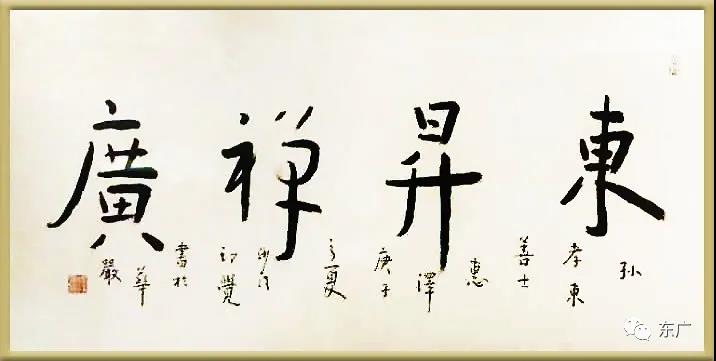 東昇禅廣
孫
孝東
善士
惠
澤
庚子
夏
初覺
書於
華
嚴
东广